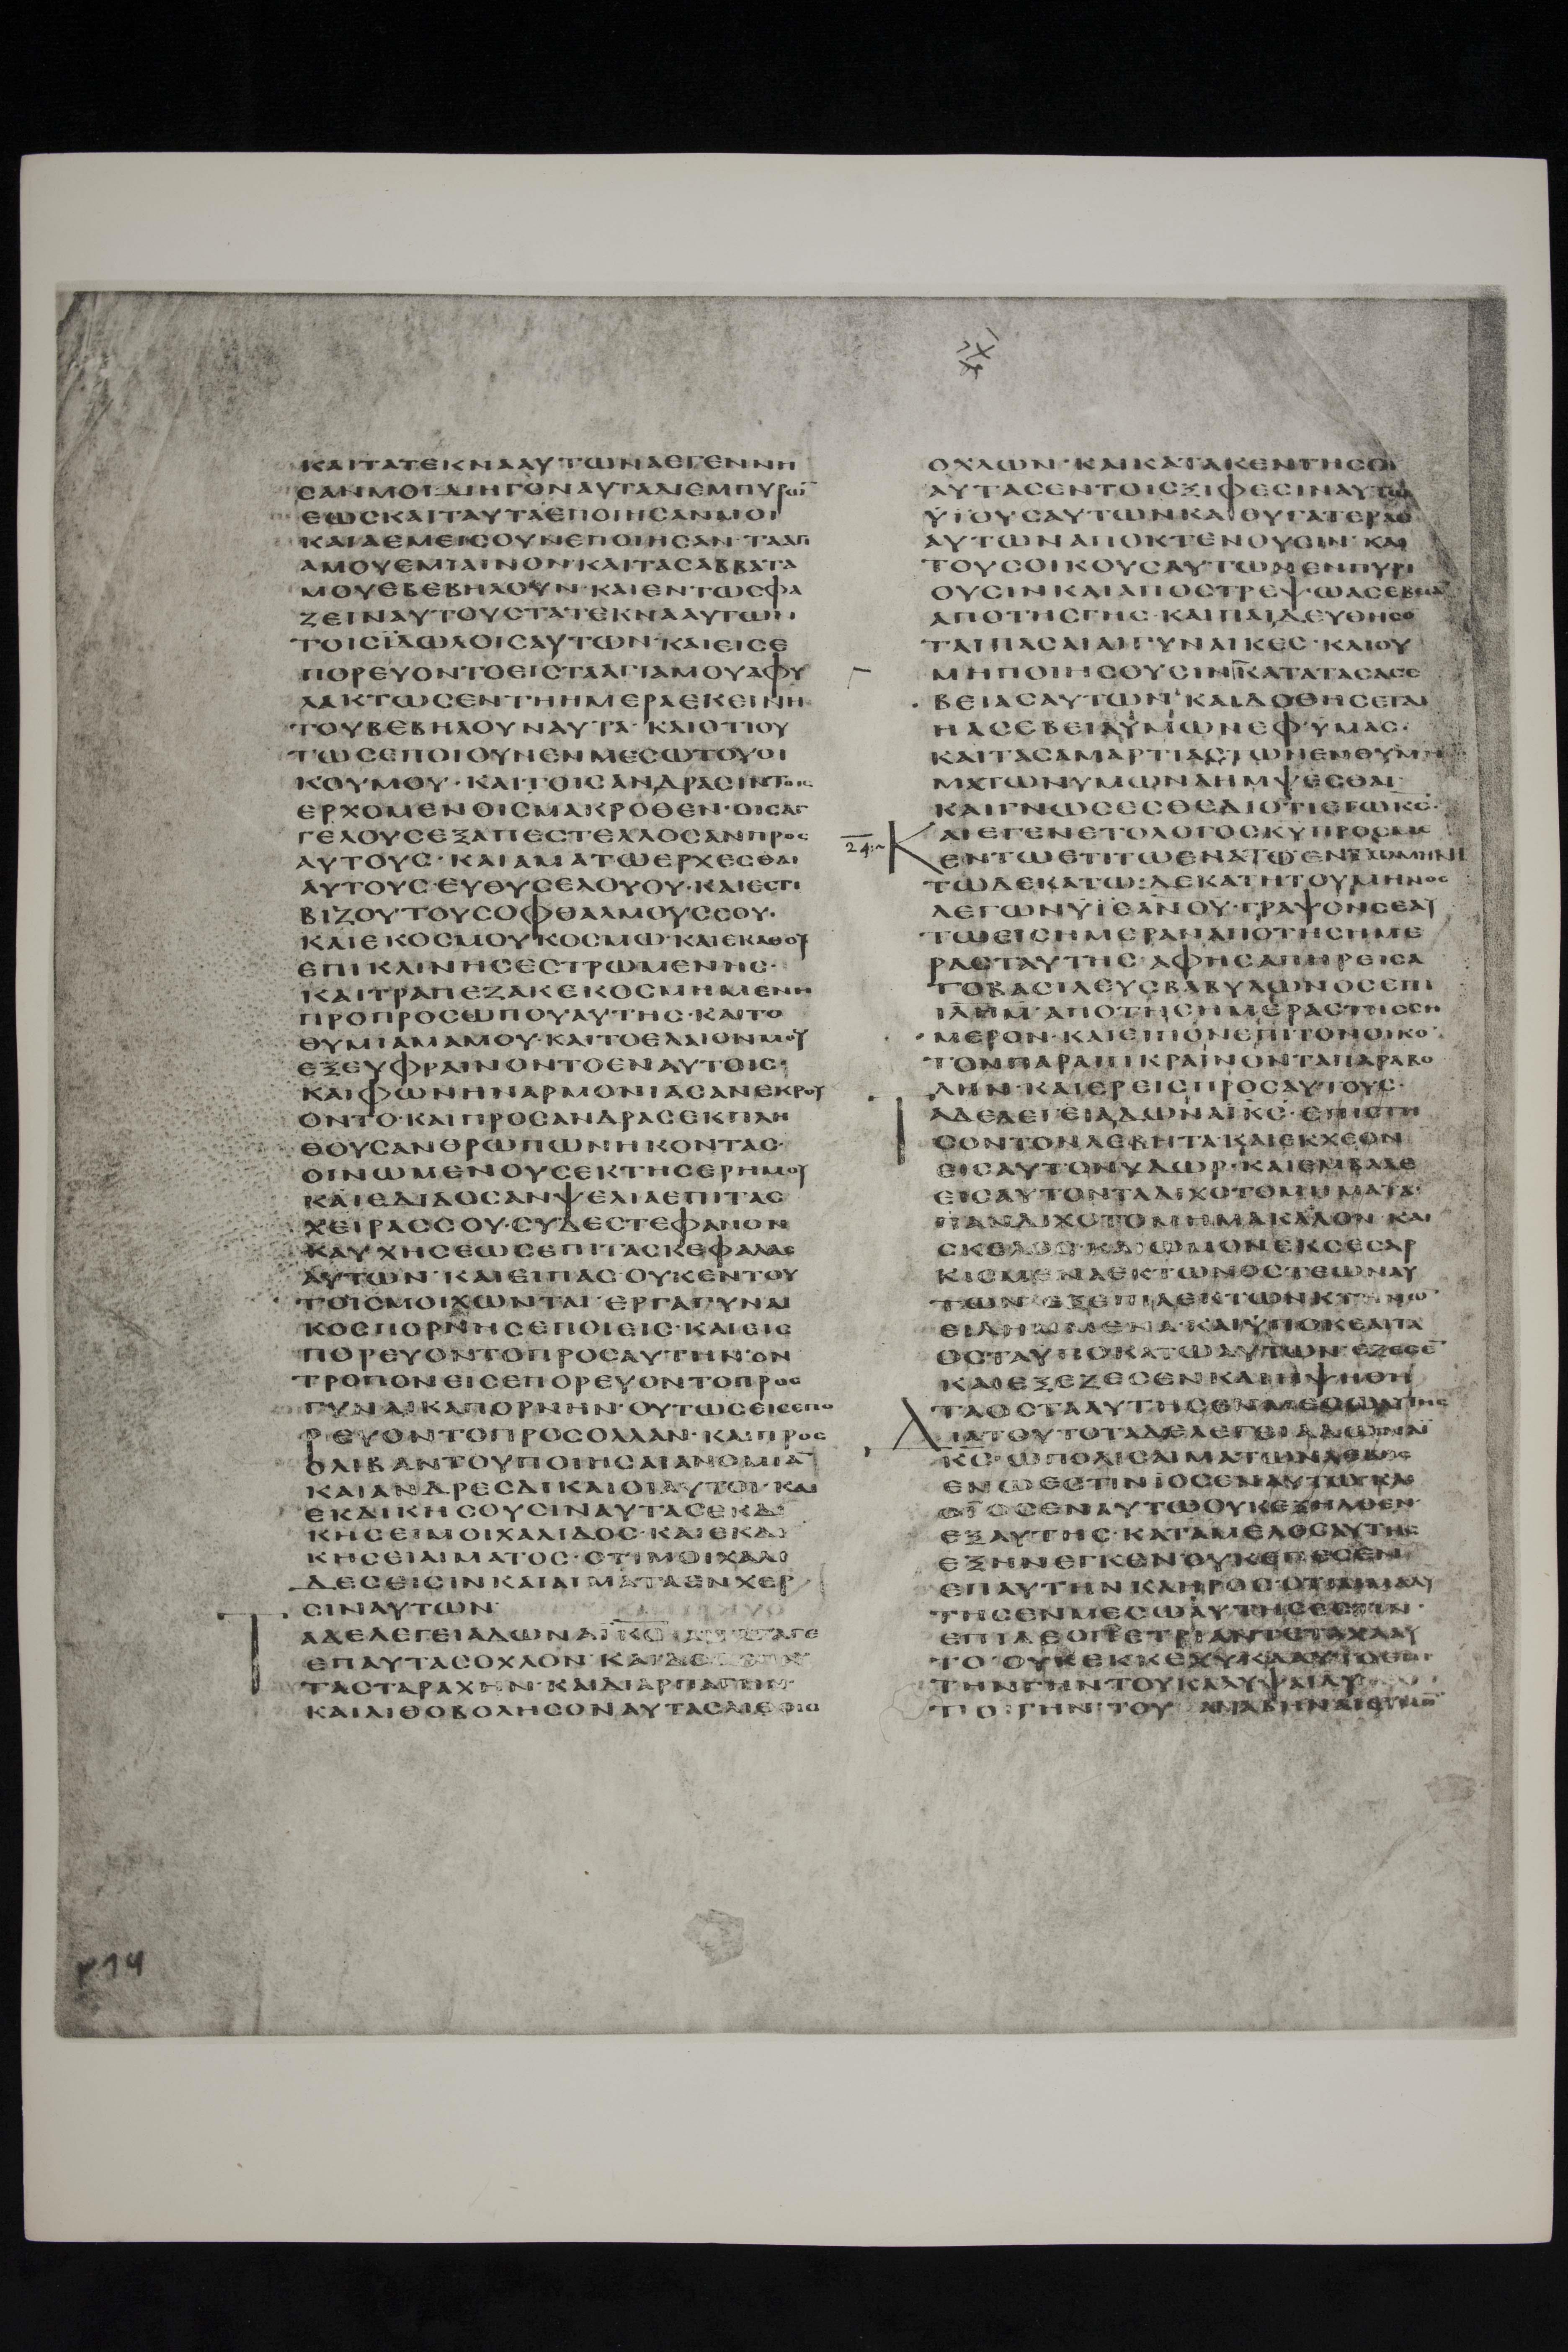 ΚΑΙΤΑΤΕΚΝΑΑΥΤΩΝΑΕΓΕΝΝΗ
ΣΑΝΜΟΙ·ΔΙΗΓΟΝΑΥΤΑΔΙΕΜΠΥΡΩ̅
ΕΩΣΚΑΙΤΑΥΤΑΕΠΟΙΗΣΑΝΜΟΙ
ΑΜΟΥΕΜΙΑΙΝΟΝ·ΚΑΙΤΑΣΑΒΒΑΤΑ
ΜΟΥΕΒΕΒΗΛΟΥΝ·ΚΑΙΕΝΤΩΣΦΑ
ΖΕΙΝΑΥΤΟΥΣΤΑΤΕΚΝΑΑΥΤΩΝ
ΤΟΙΣΪΔΩΛΟΙΣΑΥΤΩΝ·ΚΑΙΕΙΣΕ
ΠΟΡΕΥΟΝΤΟΕΙΣΤΑΑΓΙΑΜΟΥΑΦΥ
ΛΑΚΤΩΣΕΝΤΗΗΜΕΡΑΕΚΕΙΝΗ
ΤΟΥΒΕΒΗΛΟΥΝΑΥΤΑ·ΚΑΙΟΤΙΟΥ
ΤΩΣΕΠΟΙΟΥΝΕΝΜΕΣΩΤΟΥΟΙ
ΚΟΥΜΟΥ·ΚΑΙΤΟΙΣΑΝΔΡΑΣΙΝΤΟΙΣ
ΕΡΧΟΜΕΝΟΙΣΜΑΚΡΟΘΕΝ·ΟΙΣΑΓ
ΓΕΛΟΥΣΕΞΑΠΕΣΤΕΛΛΟΣΑΝΠΡΟΣ
ΑΥΤΟΥΣ·ΚΑΙΑΜΑΤΩΕΡΧΕΣΘΑΙ
ΑΥΤΟΥΣ·ΕΥΘΥΣΕΛΟΥΟΥ·ΚΑΙΕΣΤΙ
ΒΙΖΟΥΤΟΥΣΟΦΘΑΛΜΟΥΣΣΟΥ·
ΚΑΙΕΚΟΣΜΟΥΚΟΣΜΩ·ΚΑΙΕΚΑΘΟΥ
ΕΠΙΚΛΙΝΗΣΕΣΤΡΩΜΕΝΗΣ·
ΚΑΙΤΡΑΠΕΖΑΚΕΚΟΣΜΗΜΕΝΗ
ΠΡΟΠΡΟΣΩΠΟΥΑΥΤΗΣ·ΚΑΙΤΟ
ΘΥΜΙΑΜΑΜΟΥ·ΚΑΙΤΟΕΛΑΙΟΝΜΟΥ
ΕΞΕΥΦΡΑΙΝΟΝΤΟΕΝΑΥΤΟΙΣ·
ΚΑΙΦΩΝΗΝΑΡΜΟΝΙΑΣΑΝΕΚΡΟΥ
ΟΝΤΟ·ΚΑΙΠΡΟΣΑΝΔΡΑΣΕΚΠΛΗ
ΘΟΥΣΑΝΘΡΩΠΩΝΗΚΟΝΤΑΣ·
ΟΙΝΩΜΕΝΟΥΣΕΚΤΗΣΕΡΗΜΟΥ
ΚΑΙΕΔΙΔΟΣΑΝΨΕΛΙΑΕΠΙΤΑΣ
ΧΕΙΡΑΣΣΟΥ·ΣΥΔΕΣΤΕΦΑΝΟΝ
ΚΑΥΧΗΣΕΩΣΕΠΙΤΑΣΚΕΦΑΛΑΣ
ΑΥΤΩΝ·ΚΑΙΕΙΠΑΣ·ΟΥΚΕΝΤΟΥ
ΤΟΙΣΜΟΙΧΩΝΤΑΙ·ΕΡΓΑΓΥΝΑΙ
ΚΟΣΠΟΡΝΗΣΕΠΟΙΕΙΣ·ΚΑΙΕΙΣ
ΠΟΡΕΥΟΝΤΟΠΡΟΣΑΥΤΗΝ·ΟΝ
ΤΡΟΠΟΝΕΙΣΕΠΟΡΕΥΟΝΤΟΠΡΟΣ
ΓΥΝΑΙΚΑΠΟΡΝΗΝ·ΟΥΤΩΣΕΙΣΕΠΟ
ΡΕΥΟΝΤΟΠΡΟΣΟΛΛΑΝ·ΚΑΙΠΡΟΣ
ΟΛΙΒΑΝΤΟΥΠΟΙΗΣΑΙΑΝΟΜΙΑ̅
ΚΑΙΑΝΔΡΕΣΔΙΚΑΙΟΙΑΥΤΟΙ·ΚΑΙ
ΕΚΔΙΚΗΣΟΥΣΙΝΑΥΤΑΣΕΚΔΙ
ΚΗΣΕΙΜΟΙΧΑΛΙΔΟΣ·ΚΑΙΕΚΔΙ
ΚΗΣΕΙΑΙΜΑΤΟΣ·ΟΤΙΜΟΙΧΑΛΙ
ΔΕΣΕΙΣΙΝΚΑΙΑΙΜΑΤΑΕΝΧΕΡ
ΣΙΝΑΥΤΩΝ·
ΤΑΔΕΛΕΓΕΙΑΔΩΝΑΪΚ̅Σ̅
ΕΠΑΥΤΑΣΟΧΛΟΝ·ΚΑΙ
ΤΑΣΤΑΡΑΧΗΝ·ΚΑΙΔΙΑΡΠΑΓΗΝ·
ΚΑΙΛΙΘΟΒΟΛΗΣΟΝΑΥΤΑΣ
ΟΧΛΩΝ·ΚΑΙΚΑΤΑΚΕΝΤΗΣΟΝ
ΑΥΤΑΣΕΝΤΟΙΣΞΙΦΕΣΙΝΑΥΤΩ̅
ΫΪΟΥΣΑΥΤΩΝΚΑΙΘΥΓΑΤΕΡΑΣ
ΑΥΤΩΝΑΠΟΚΤΕΝΟΥΣΙΝ·ΚΑΙ
ΤΟΥΣΟΙΚΟΥΣΑΥΤΩΝΕΝΠΥΡΙ
ΟΥΣΙΝΚΑΙΑΠΟΣΤΡΕΨΩΑΣΕΒΕΙΑ̅
ΑΠΟΤΗΣΓΗΣ·ΚΑΙΠΑΙΔΕΥΘΗΣΟ
ΤΑΙΠΑΣΑΙΑΙΓΥΝΑΙΚΕΣ·ΚΑΙΟΥ
ΜΗΠΟΙΗΣΟΥΣΙΝΚΑΤΑΤΑΣΑΣΕ
ΒΕΙΑΣΑΥΤΩΝ·ΚΑΙΔΟΘΗΣΕΤΑΙ
ΗΑΣΕΒΕΙΑΫΜΩΝΕΦΫΜΑΣ·
ΚΑΙΤΑΣΑΜΑΡΤΙΑΣΤΩΝΕΝΘΥΜΗ
ΜΑΤΩΝΥΜΩΝΛΗΜΨΕΣΘΑΙ·
ΚΑΙΓΝΩΣΕΣΘΕΔΙΟΤΙΕΓΩΚ̅Σ̅·
24 ΚΑΙΕΓΕΝΕΤΟΛΟΓΟΣΚΥΠΡΟΣΜΕ
ΕΝΤΩΕΤΙΤΩΕΝΑΤΩΕΝΤΩΜΗΝΙ
ΤΩΔΕΚΑΤΩ·ΔΕΚΑΤΗΤΟΥΜΗΝΟΣ
ΛΕΓΩΝΫΪΕΑΝΟΥ·ΓΡΑΨΟΝΣΕΑΥ
ΤΩΕΙΣΗΜΕΡΑΝΑΠΟΤΗΣΗΜΕ
ΡΑΣΤΑΥΤΗΣ·ΑΦΗΣΑΠΗΡΕΙΣΑ
ΤΟΒΑΣΙΛΕΥΣΒΑΒΥΛΩΝΟΣΕΠΙ
ΙΛΗΜ·ΑΠΟΤΗΣΗΜΕΡΑΣΤΗΣΣΗ
ΜΕΡΟΝ·ΚΑΙΕΙΠΟΝΕΠΙΤΟΝΟΙΚΟ̅
ΤΟΝΠΑΡΑΠΙΚΡΑΙΝΟΝΤΑΠΑΡΑΒΟ
ΛΗΝ·ΚΑΙΕΡΕΙΣΠΡΟΣΑΥΤΟΥΣ·
ΤΑΔΕΛΕΓΕΙΑΔΩΝΑΪΚ̅Σ̅·ΕΠΙΣΤΗ
ΣΟΝΤΟΝΛΕΒΗΤΑ·ΚΑΙΕΚΧΕΟΝ
ΕΙΣΑΥΤΟΝΥΔΩΡ·ΚΑΙΕΜΒΑΛΕ
ΕΙΣΑΥΤΟΝΤΑΔΙΧΟΤΟΜΗΜΑΤΑ·
ΠΑΝΔΙΧΟΤΟΜΗΜΑΚΑΛΟΝ·ΚΑΙ
ΣΚΕΛΟΣ·ΚΑΙΩΜΟΝΕΚΣΕΣΑΡ
ΟΣΤΑΥΠΟΚΑΤΩΑΥΤΩΝ·ΕΖΕΣΕ̅
ΚΑΙΕΞΕΖΕΣΕΝΚΑΙΗΨΗΘΗ
ΤΑΟΣΤΑΑΥΤΗΣΕΝΜΕΣΩΑΥΤΗΣ
ΔΙΑΤΟΥΤΟΤΑΔΕΛΕΓΕΙΑΔΩΝΑΪ
Κ̅Σ̅·ΩΠΟΛΙΣΑΙΜΑΤΩΝΛΕΒΗΣ
ΕΝΩΕΣΤΙΝΪΟΣΕΝΑΥΤΩ·ΚΑΙ
ΟΪΟΣΕΝΑΥΤΩΟΥΚΕΞΗΛΘΕΝ
ΕΞΑΥΤΗΣ·ΚΑΤΑΜΕΛΟΣΑΥΤΗΣ
ΕΞΗΝΕΓΚΕΝΟΥΚΕΠΕΣΕΝ
ΕΠΑΥΤΗΝΚΛΗΡΟΣ·ΟΤΙΑΙΜΑΑΥ
ΤΗΣΕΝΜΕΣΩΑΥΤΗΣΕΣΤΙΝ·
ΤΟ·ΟΥΚΕΚΚΕΧΥΚΑΑΥΤΟΕΠΙ
ΤΗΝΓΗΝΤΟΥΚΑΛΥΨΑΙΑΥ
ΤΟΓΗΝ·ΤΟΥΑΝΑΒΗΝΑΙΘΥΜΟ̅